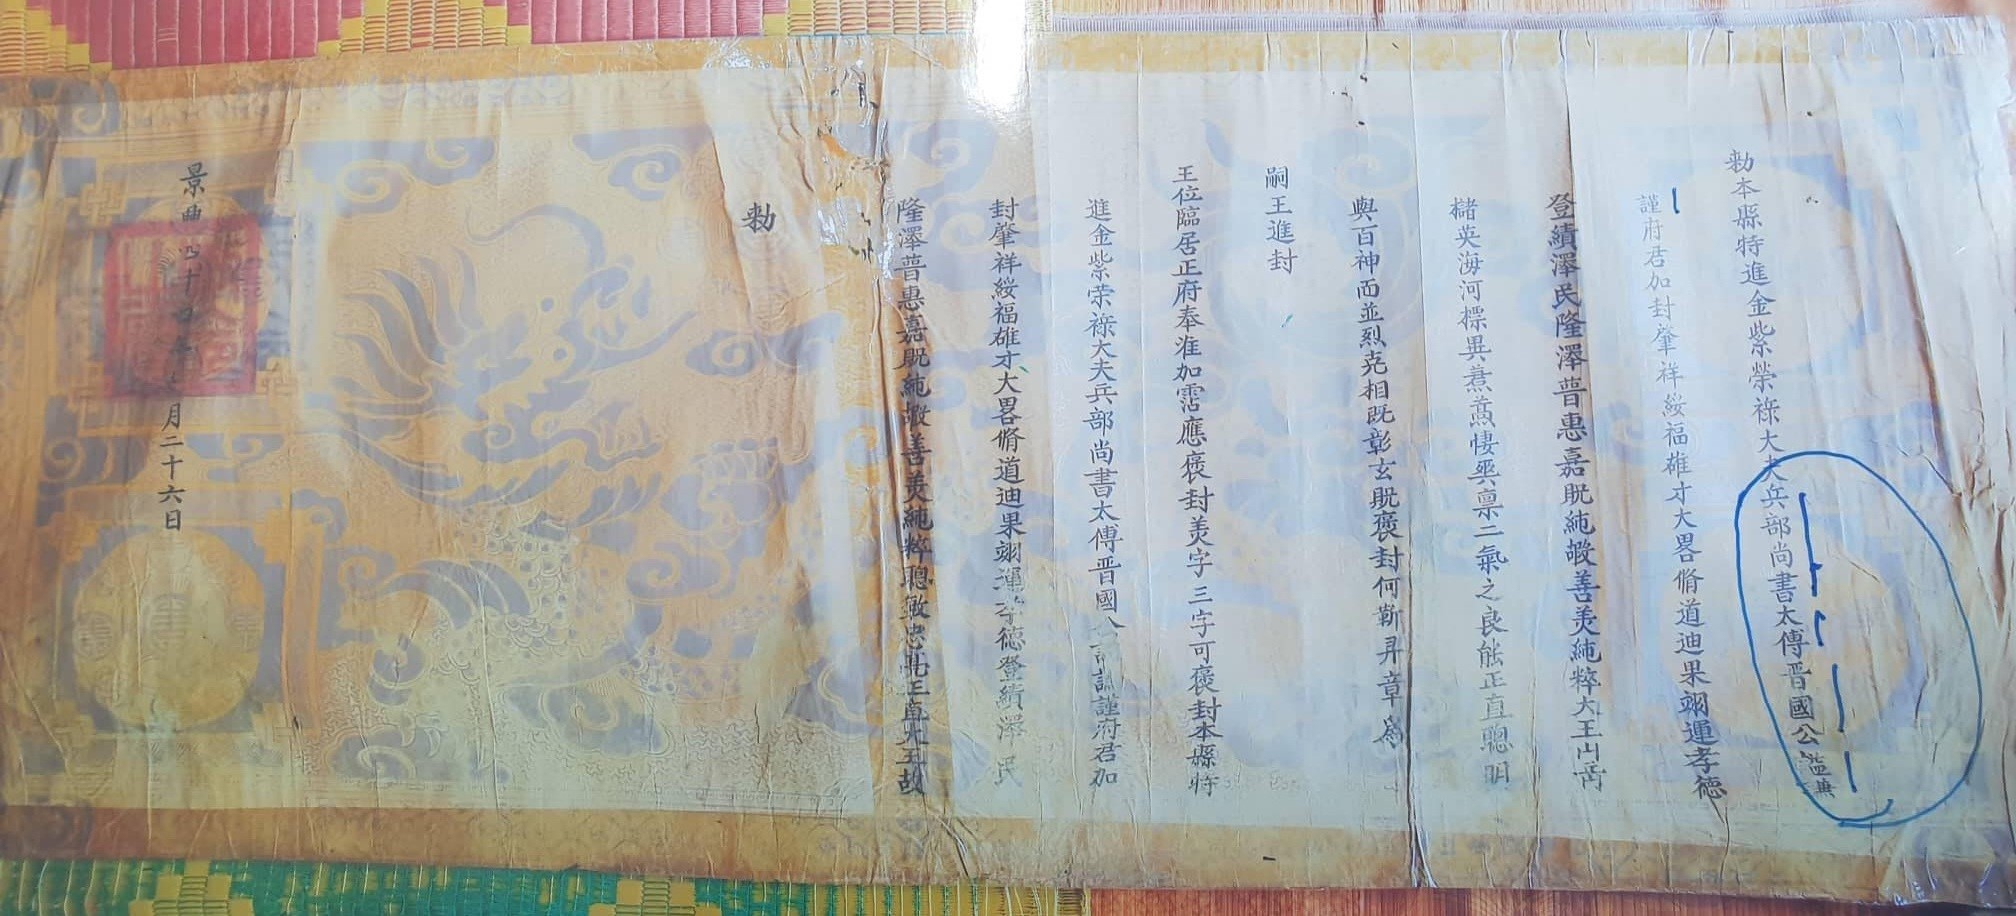 勅本縣特進金紫榮祿大夫兵部尚書太傅晋國公謚
謹府君加封肇祥綏福雄才大畧脩道迪果翊運孝德
登績澤民隆澤普惠嘉貺純嘏善美純粹大王山岳
儲英海河標異焄蒿悽爽禀二氣之良能正直聰明
與百神而並烈克相既彰玄貺褒封何靳昇章爲
嗣王進封
王位臨居正府奉准加霑應褒封美字三字可褒封本縣特
進金紫荣祿大夫兵部尚書太傅晋國公謹府君加
封肇祥綏福雄才大畧脩道迪果翊運孝德登績澤民
隆澤普惠嘉貺純嘏善美純粹聰敏忠正直大王故
勅
景興四十四年七月二十六日